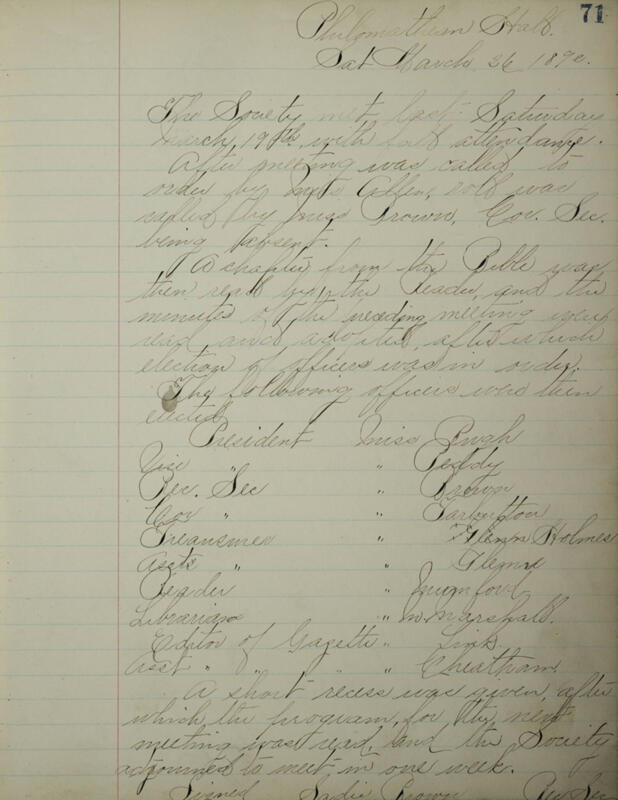 71
Philomathean Hall.
Sat March 26 1892.
The Society met last Saturday
March, 19th, with full attendance.
After meeting was called to
order by Miss Allen, roll was
called by Miss Brown, Cor. Sec.
being absent.
A chapter from the Bible was
then read by the Reader, and the
minutes of the preceding meeting were
read and adopted, after which
election of officers was in order.
The following officers were then
elected
President Miss Pugh
Vice " " Peddy
Rec. Sec " Brown
Cor " " Tarbutton
Treasurer " Glenn Holmes
Asst " " Glenn
Reader " Mumford
Librarian " M. Marshall.
Editor of Gazette " Link
Asst " " " " Cheatham.
A short recess was given, after
which, the program, for the next
meeting was read, and the Society
adjourned to meet in one week.
Signed Sadie Brown Rec Sec